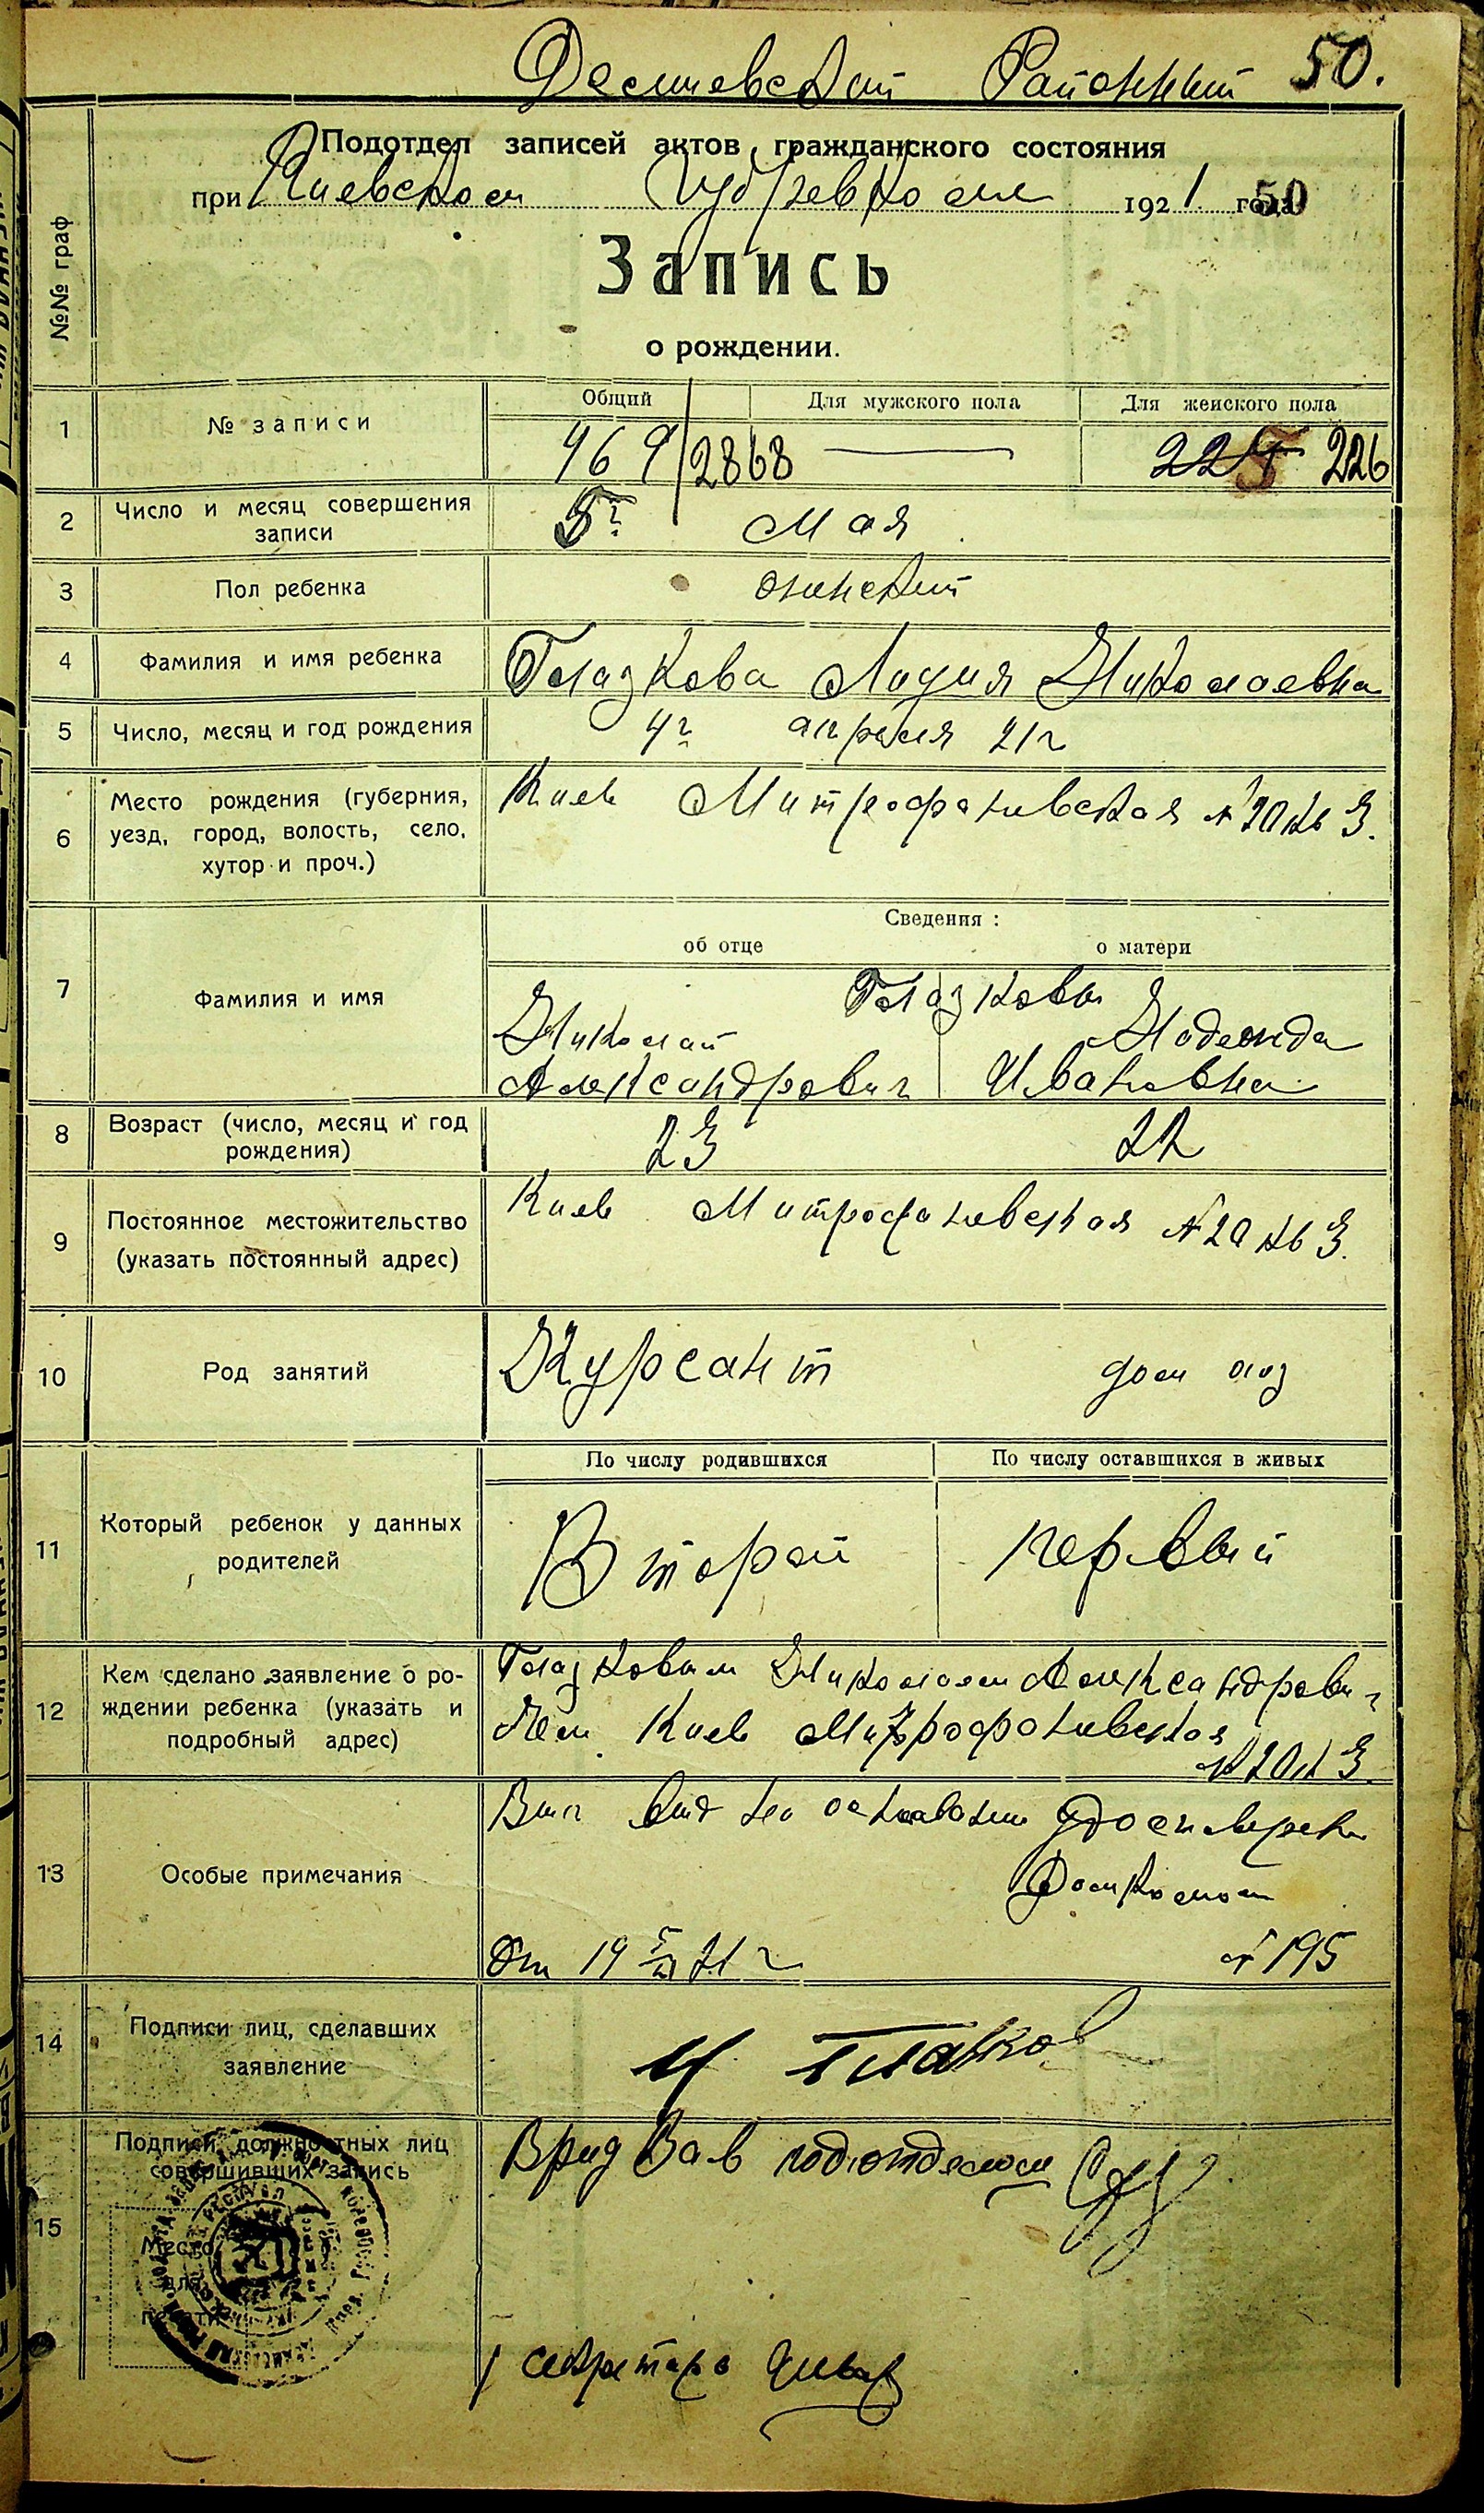 Районный 50.
Подотдел записей актов гражданского состояния
при Киевском Губревкоме 1921 года 50
№№ граф
Запись
о рождении.
Общий Для мужского пола Для женского пола
1 № записи 469/2868 — 226
2 Число и месяц совершения
записи
Мая
3 Пол ребенка женский
4 Фамилия и имя ребенка Глазкова Лидия Николаевна
5 Число, месяц и год рождения 4го апреля 21г
6 Место рождения (губерния,
уезд, город, волость, село,
хутор и проч.)
Киев Митрофановская № 20 кв 3.
Сведения:
об отце о матери
7 Фамилия и имя
Глазковы
Николай Надежда
Александрович Ивановна
8 Возраст (число, месяц и год
рождения)
23 22
9 Постоянное местожительство
(указать постоянный адрес)
Киев Митрофановская № 20 кв 3.
10 Род занятий Курсант дом хоз
По числу родившихся По числу оставшихся в живых
11 Который ребенок у данных
родителей
Второй первый
12 Кем сделано заявление о ро-
ждении ребенка (указать и
подробный адрес)
Глазковым Николаем Александрови-
чем Киев Митрофановская
№ 20 к 3.
13 Особые примечания
вид на основании удостверен
Домкома
От 19 21 г № 195
14 Подписи лиц, сделавших
заявление
Н Глазков
15 Подписи должностных лиц
совершивших запись
Врид Зав подотделом
Место
для
печати
секретарь